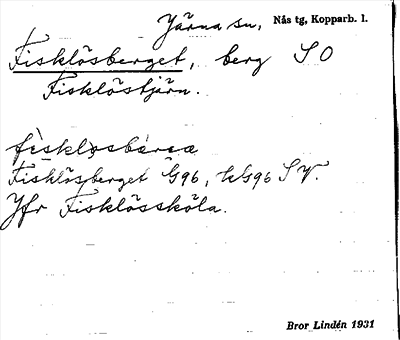 Järna sn, Nås tg, Kopparb. l.
Fisklösberget, berg S O
Fisklöstjärn.
Fisklösberget G96, KG96 S V.
Jfr Fisklössköla.
Bror Lindén 1931